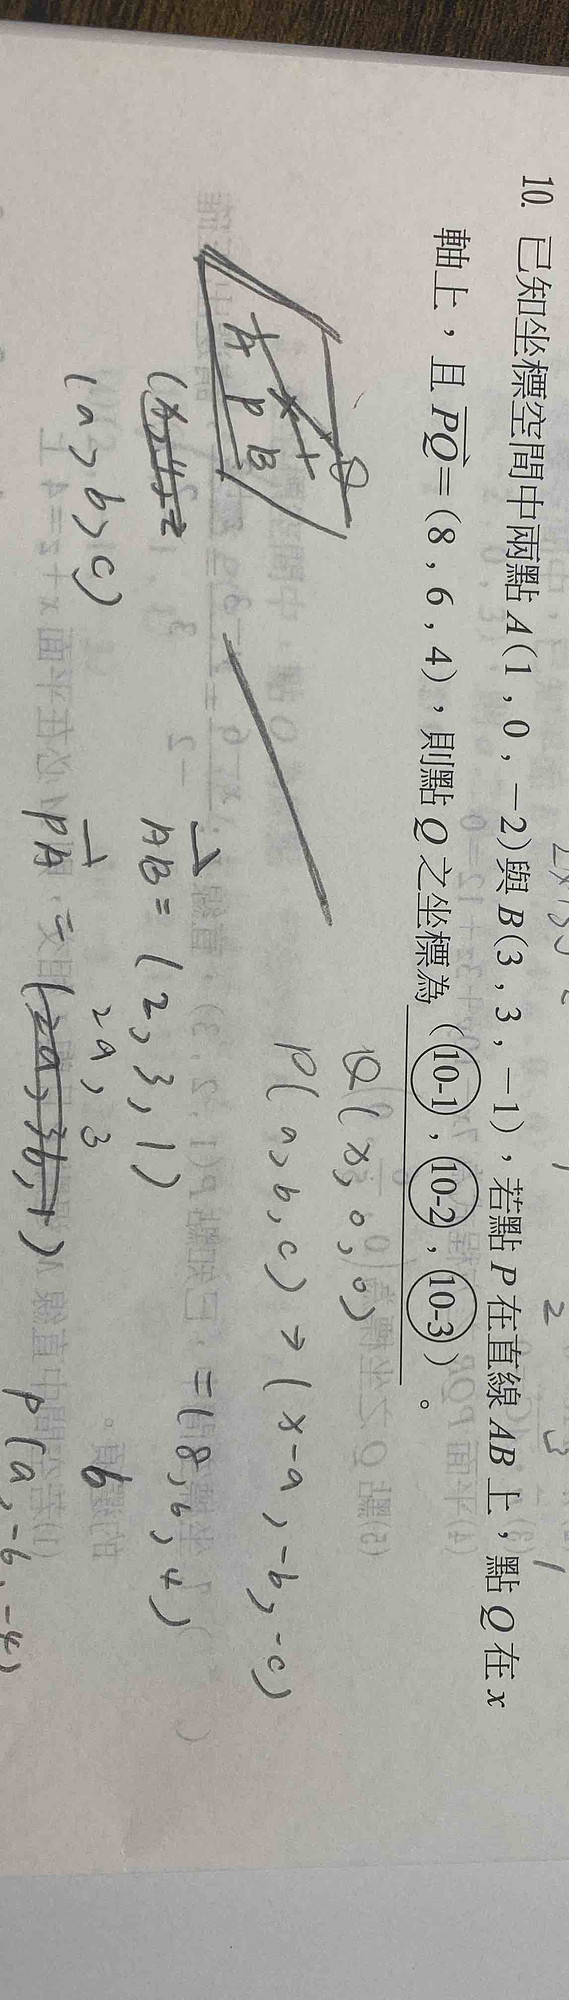 10. 已知坐標空間中兩點 A(1, 0, -2)與 B(3, 3, -1),若點 P 在直線 AB 上,點 Q 在 x
軸上,且 PQ=(8, 6, 4),則點 Q 之坐標為 (10-1, 10-2, 10-3)。
Q(x, 0, 0)
P(a, b, c) → (x-a, -b, -c)
= (8, 6, 4)
A P B Q
AB = (2, 3, 1)
(a, b, c)
PA =
2a, 3
b
P(a, -6, -4)